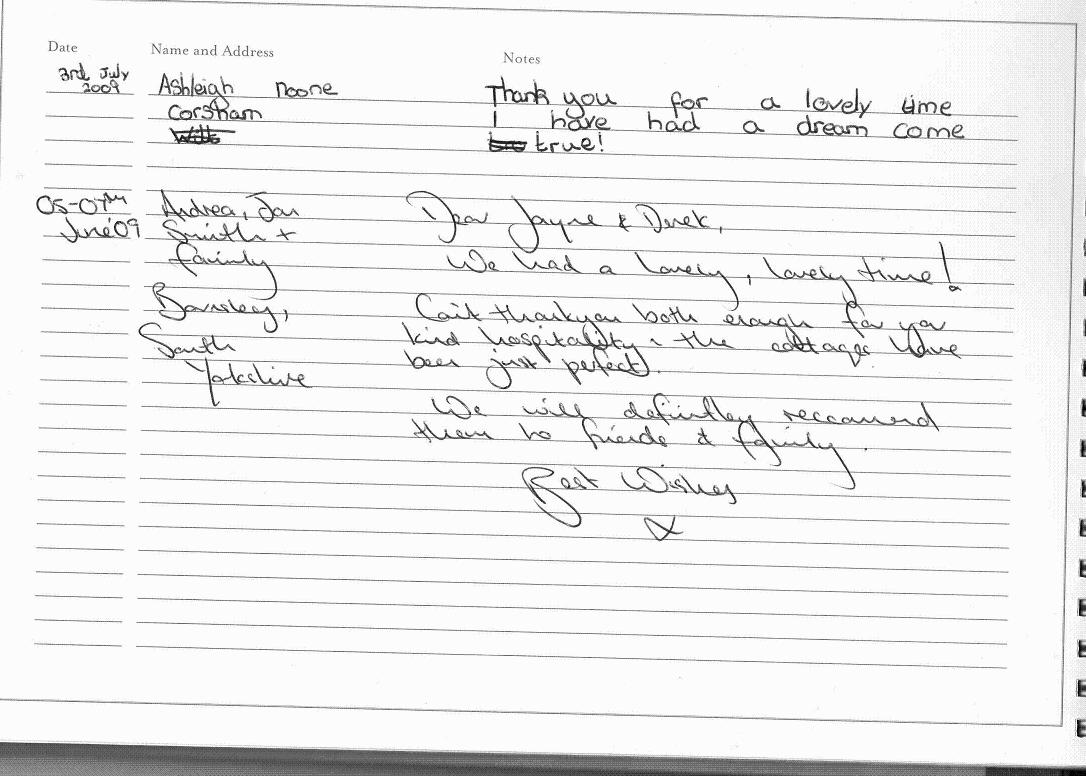 Date Name and Address Notes
3rd July
2009
Ashleigh noone
Corsham
Wilts
Thank you for a lovely time
I have had a dream come
true!
05-07th
June 09
Andrea, Jan
Smith +
family
Barnsley,
South
Yorkshire
Dear Jayne & Derek,
We had a lovely, lovely time!
Can't thankyou both enough for your
kind hospitality, the cottages have
been just perfect).
We will definitley reccomend
them to friends & family.
Best Wishes
X